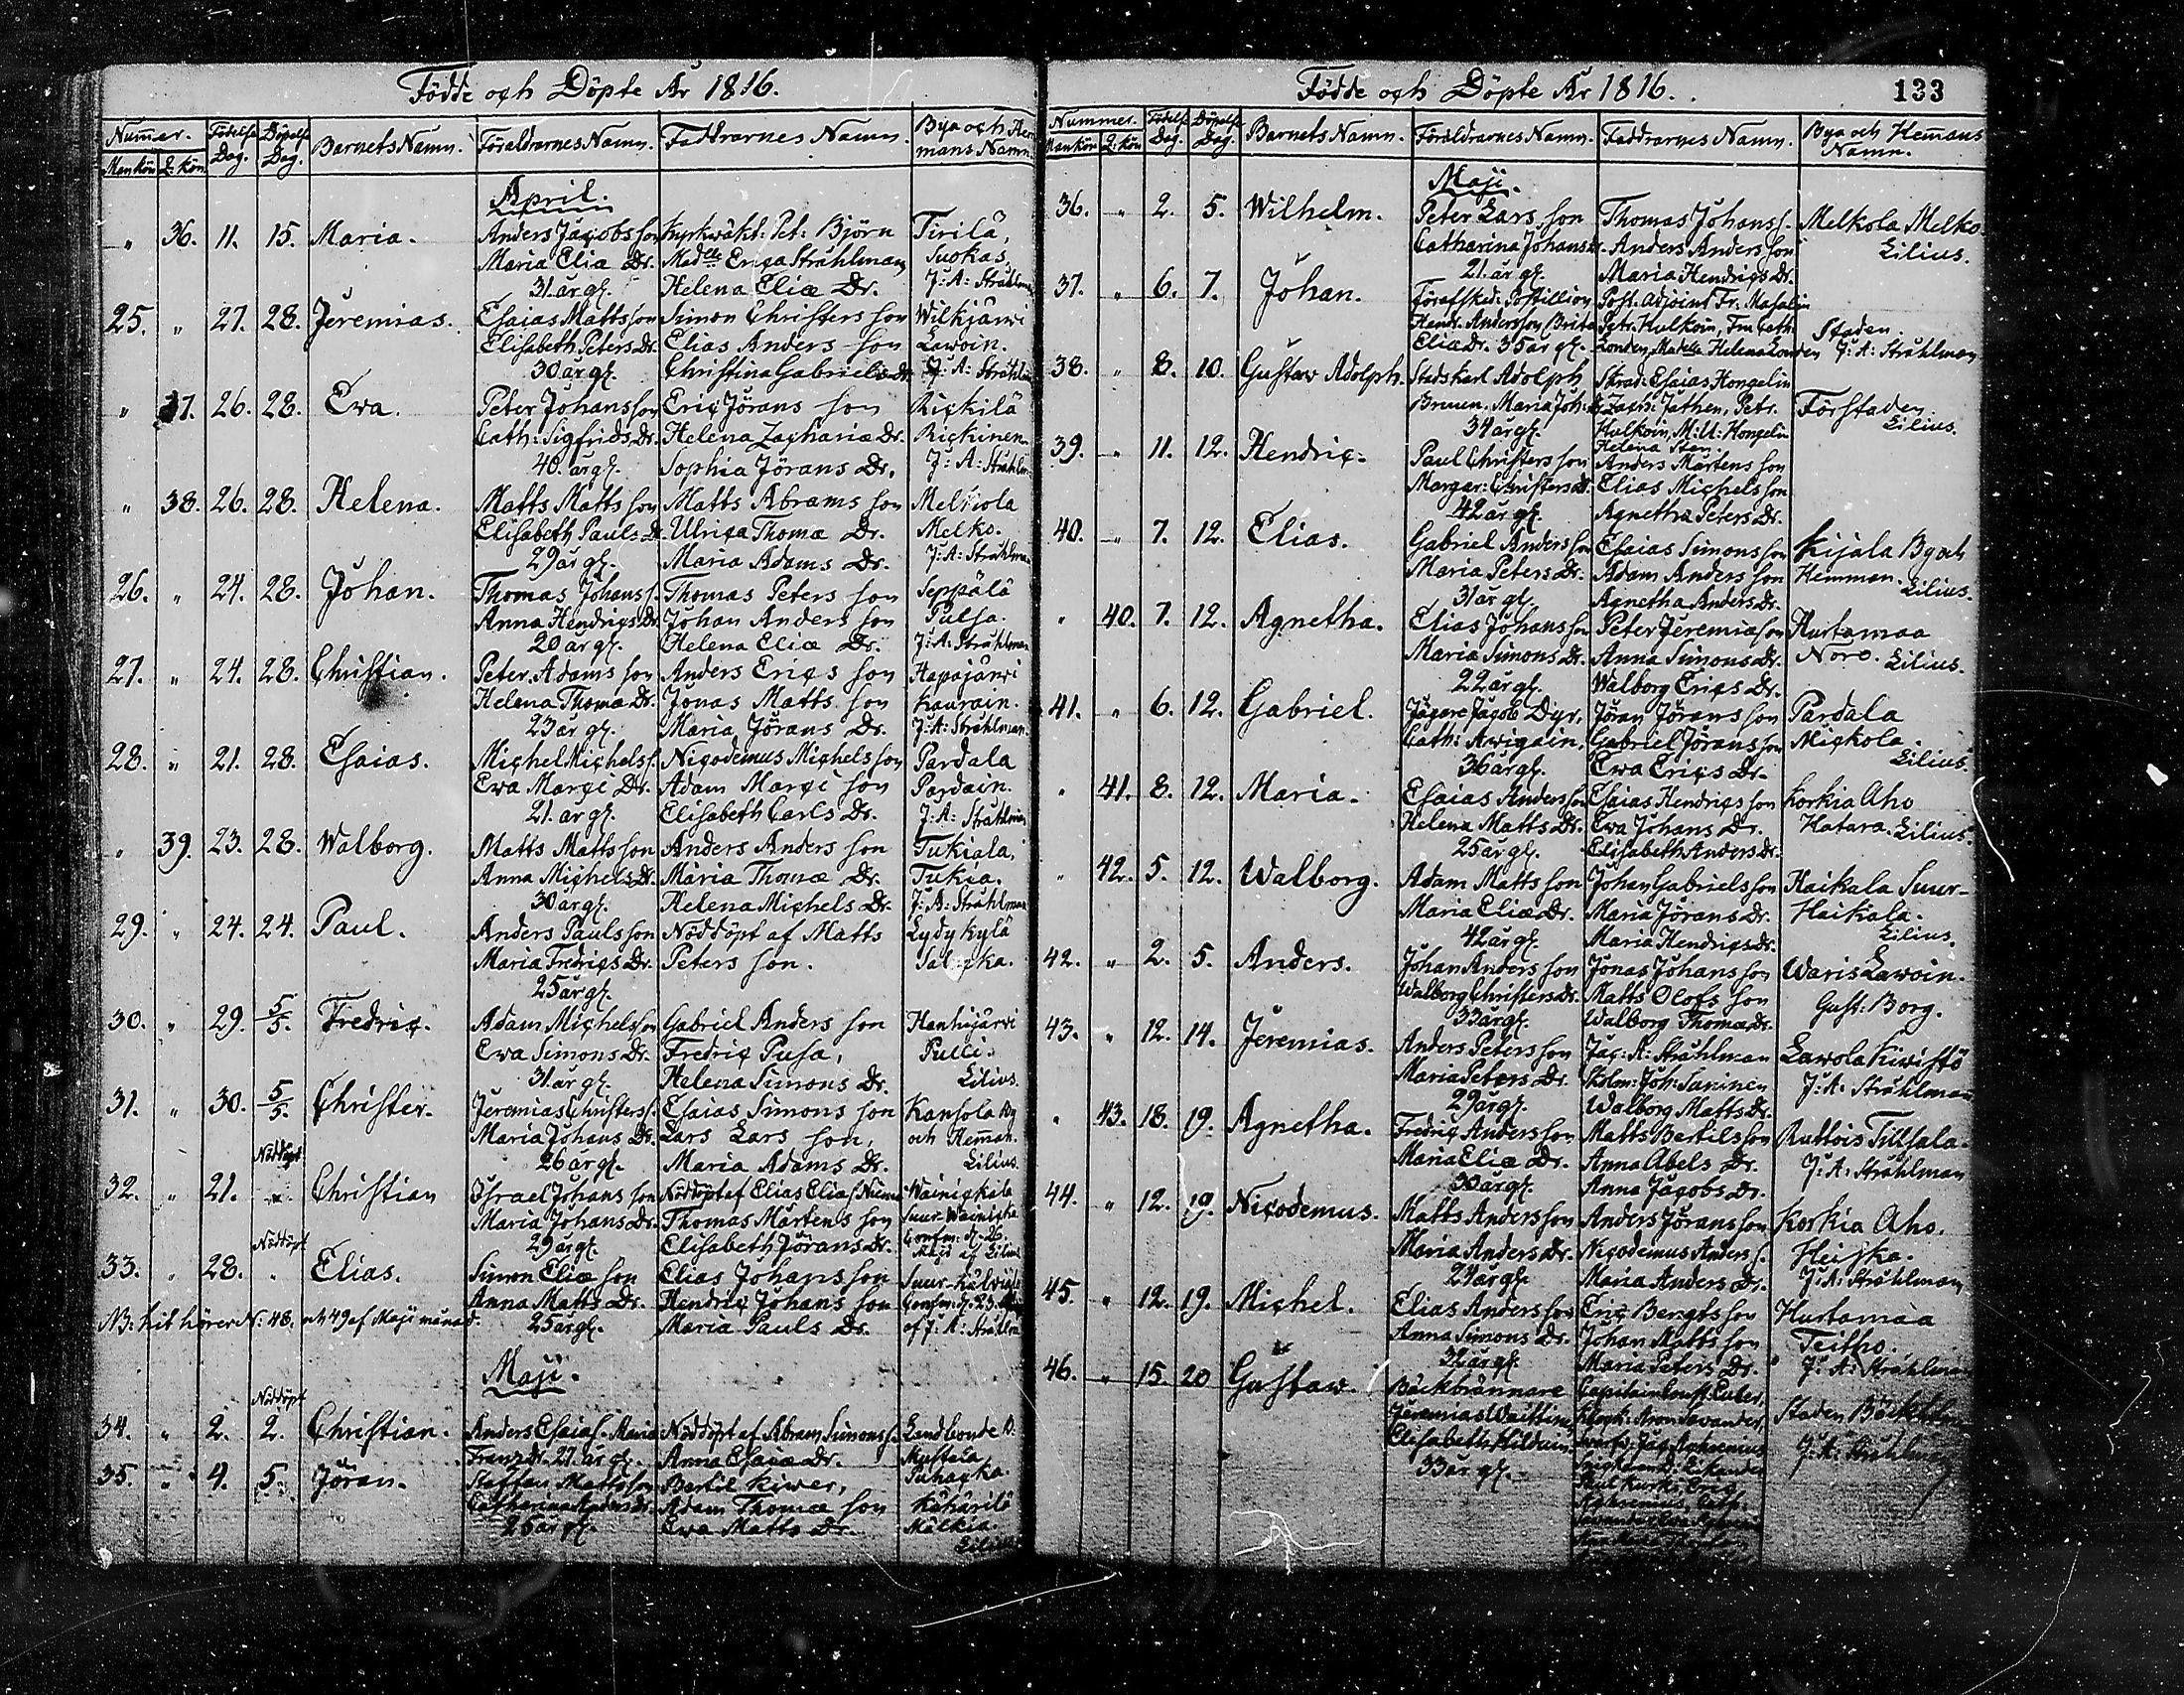 Födde och Döpte År 1816.
Numer. Födelse Dag. Döpelse Dag. Barnets Namn. Föräldrarnes Namn. Faddrarnes Namn. Bya och Hem
Mankön Q: kön. mans Namn
April.
" 36. 11. 15. Maria. Anders Jacobs son Kyrkwäkt: Pet: Björn Tirilä,
Maria Eliæ Dr. Madlle Erica Stråhlman Suokas,
31. år gl. Helena Eliæ Dr. J: A: Stråhlm
25. " 27. 28. Jeremias. Esaias Matts son Simon Christers son Wilkjärwi
Elisabeth Peters Dr. Elias Anders son Lawoin.
30 år gl. Christina Gabriels Dr J: A: Stråhlm
" 37. 26. 28. Ewa. Peter Johans son Eric Jörans son Rickilä
Cath: Sigfrids Dr. Helena Zachariæ Dr. Rickinen
40. år gl. Sophia Jörans Dr. J: A: Stråhlm
" 38. 26. 28. Helena. Matts Matts son Matts Abrams son Melkola
Elisabeth Pauls Dr. Ulrica Thomæ Dr. Melko.
29 år gl. Maria Adams Dr. J: A: Stråhlman
26. " 24. 28. Johan. Thomas Johans s. Thomas Peters son Seppälä
Anna Hendrics Dr Johan Anders son Pulsa.
20 år gl. Helena Eliæ Dr. J: A: Stråhlman
27. " 24. 28. Christian. Peter Adams son Anders Erics son Hapajärwi
Helena Thomæ Dr. Jonas Matts son Kaurain.
23 år gl. Maria Jörans Dr. J: A: Stråhlman.
28. " 21. 28. Esaias. Michel Michels s. Nicodemus Michels son Pardala
Ewa Marci Dr. Adam Marci son Pardain.
21. år gl. Elisabeth Carls Dr. J: A: Stråhlman
" 39. 23. 28. Walborg. Matts Matts son Anders Anders son Tukiala,
Anna Michels Dr. Maria Thomæ Dr. Tukia.
30 år gl. Helena Michels Dr. J: A: Stråhlman
29. " 24. 24. Paul. Anders Pauls son Nöddöpt af Matts Lydykylä
Maria Fredrics Dr. Peters son.
25 år gl.
30. " 29. 5/5. Fredric. Adam Michels son Gabriel Anders son Hanhijärwi
Ewa Simons Dr. Fredric Pusa, Pulli.
31. år gl. Helena Simons Dr. Lilius.
31. " 30. 5/5. Christer. Jeremias Christers s. Esaias Simons son Kansola By
Maria Johans Dr. Lars Lars son, och Heman.
Nöddöpt 26 år gl. Maria Adams Dr. Lilius.
32. " 21. " Christian Israel Johans son Nöddöpt af Elias Elias Wainickala
Maria Johans Dr. Thomas Mårtens son Suur-Wainicka
Nöddöpt 29 år gl. Elisabeth Jörans Dr. Confm: d. 26 Maji af Lilius
33. " 28. " Elias. Simon Eliæ son Elias Johans son
Anna Matts Dr. Hendric Johans son Confm: d. 23.
NB: hit hörer N: 48. och 49 af Maji månad. 25 år gl. Maria Pauls Dr. af J: A: Stråhlm
Maji.
Nöddöpt
34. " 2. 2. Christian. Anders Esaias. Maria Nöddöpt af Abram Simons s. Landbonde
Franz Dr. 27. år gl. Anna Esaiæ Dr. Mustala
35. " 4. 5. Jöran. Staffan Matts son Bertil Kiwer,
Catharina Anders Dr. Adam Thomæ son Kähärilä
25 år gl. Ewa Matts Dr. Mälkiä.
Lilius
Födde och Döpte År 1816. 133
Nummer. Födelse Dag. Döpelse Dag. Barnets Namn. Föräldrarnes Namn. Faddrarnes Namn. Bya och Hemans
Mankön Q: kön Namn.
Maji.
36. " 2. 5. Wilhelm. Peter Lars son Thomas Johans s. Melkola Melko
Catharina Johans Dr. Anders Anders son Lilius.
21. år gl. Maria Hendrics Dr.
37. " 6. 7. Johan. Förafsked: Postillion Post. Adjoint Fr: Masalin
Hendr. Andersson, Brita Petr. Hulkoin, Fru Cath:
Eliæ Dr. 35 år gl. Londen, Madlle Helena Londen Staden. J: A: Stråhlman
38. " 8. 10. Gustaw Adolph. Stadskarl Adolph Skrad: Esaias Hongelin
Bruun. Maria Joh: Dr Zach: Jathen, Petr. Förstaden.
34 år gl. Hulkoin, M: U: Hongelin Lilius.
Helena Sten.
39. " 11. 12. Hendric. Paul Christers son Anders Mårtens son
Margar: Christers Dr. Elias Michels son
42 år gl. Agnetha Peters Dr.
40. " 7. 12. Elias. Gabriel Anders son Esaias Simons son Kijala By och
Maria Peters Dr. Adam Anders son Hemman.
31 år gl. Agnetha Anders Dr. Lilius.
" 40. 7. 12. Agnetha. Elias Johans son Peter Jeremiæ son Hurtamaa
Maria Simons Dr. Anna Simons Dr. Noro. Lilius.
22 år gl. Walborg Erics Dr.
41. " 6. 12. Gabriel. Jägare Jacob Dyr, Jöran Jörans son Pardala
Cath: Awicain, Gabriel Jörans son Mickola.
36 år gl. Ewa Erics Dr. Lilius.
" 41. 8. 12. Maria. Esaias Anders son Esaias Hendrics son Korkia Aho
Helena Matts Dr. Ewa Johans Dr. Hatara. Lilius.
25 år gl. Elisabeth Anders Dr.
" 42. 5. 12. Walborg. Adam Matts son Johan Gabriels son Haikala Suur-
Maria Eliæ Dr. Maria Jörans Dr. Haikala.
42 år gl. Maria Hendrics Dr. Lilius.
42. " 2. 5. Anders. Johan Anders son Jonas Johans son Waris Lawoin.
Walborg Christers Dr. Matts Olofs son Gust: Borg.
33 år gl. Walborg Thomæ Dr.
43. " 12. 14. Jeremias. Anders Peters son Jac: A: Stråhlman Lawola Kiwistö
Maria Peters Dr. Kolm: Joh: Saninen J: A: Stråhlman
29 år gl. Walborg Matts Dr.
" 43. 18. 19. Agnetha. Fredric Anders son Matts Bertils son Ruttois Tillsala.
Maria Eliæ Dr. Anna Abels Dr. J: A: Stråhlman
30 år gl. Anna Jacobs Dr.
44. " 12. 19. Nicodemus. Matts Anders son Anders Jörans son Korkia Aho.
Maria Anders Dr. Nicodemus Anders s. Heiska.
24 år gl. Maria Anders Dr. J: A: Stråhlman
45. " 12. 19. Michel. Elias Anders son Eric Bengts son Hurtamaa
Anna Simons Dr. Johan Matts son Teitho.
32 år gl. Maria Peters Dr. J: A: Stråhlman
46. " 15. 20 Gustaw. Bäckbrännare Capitain
Jeremias Staden
Elisabeth J: A: Stråhlman
33 år gl.